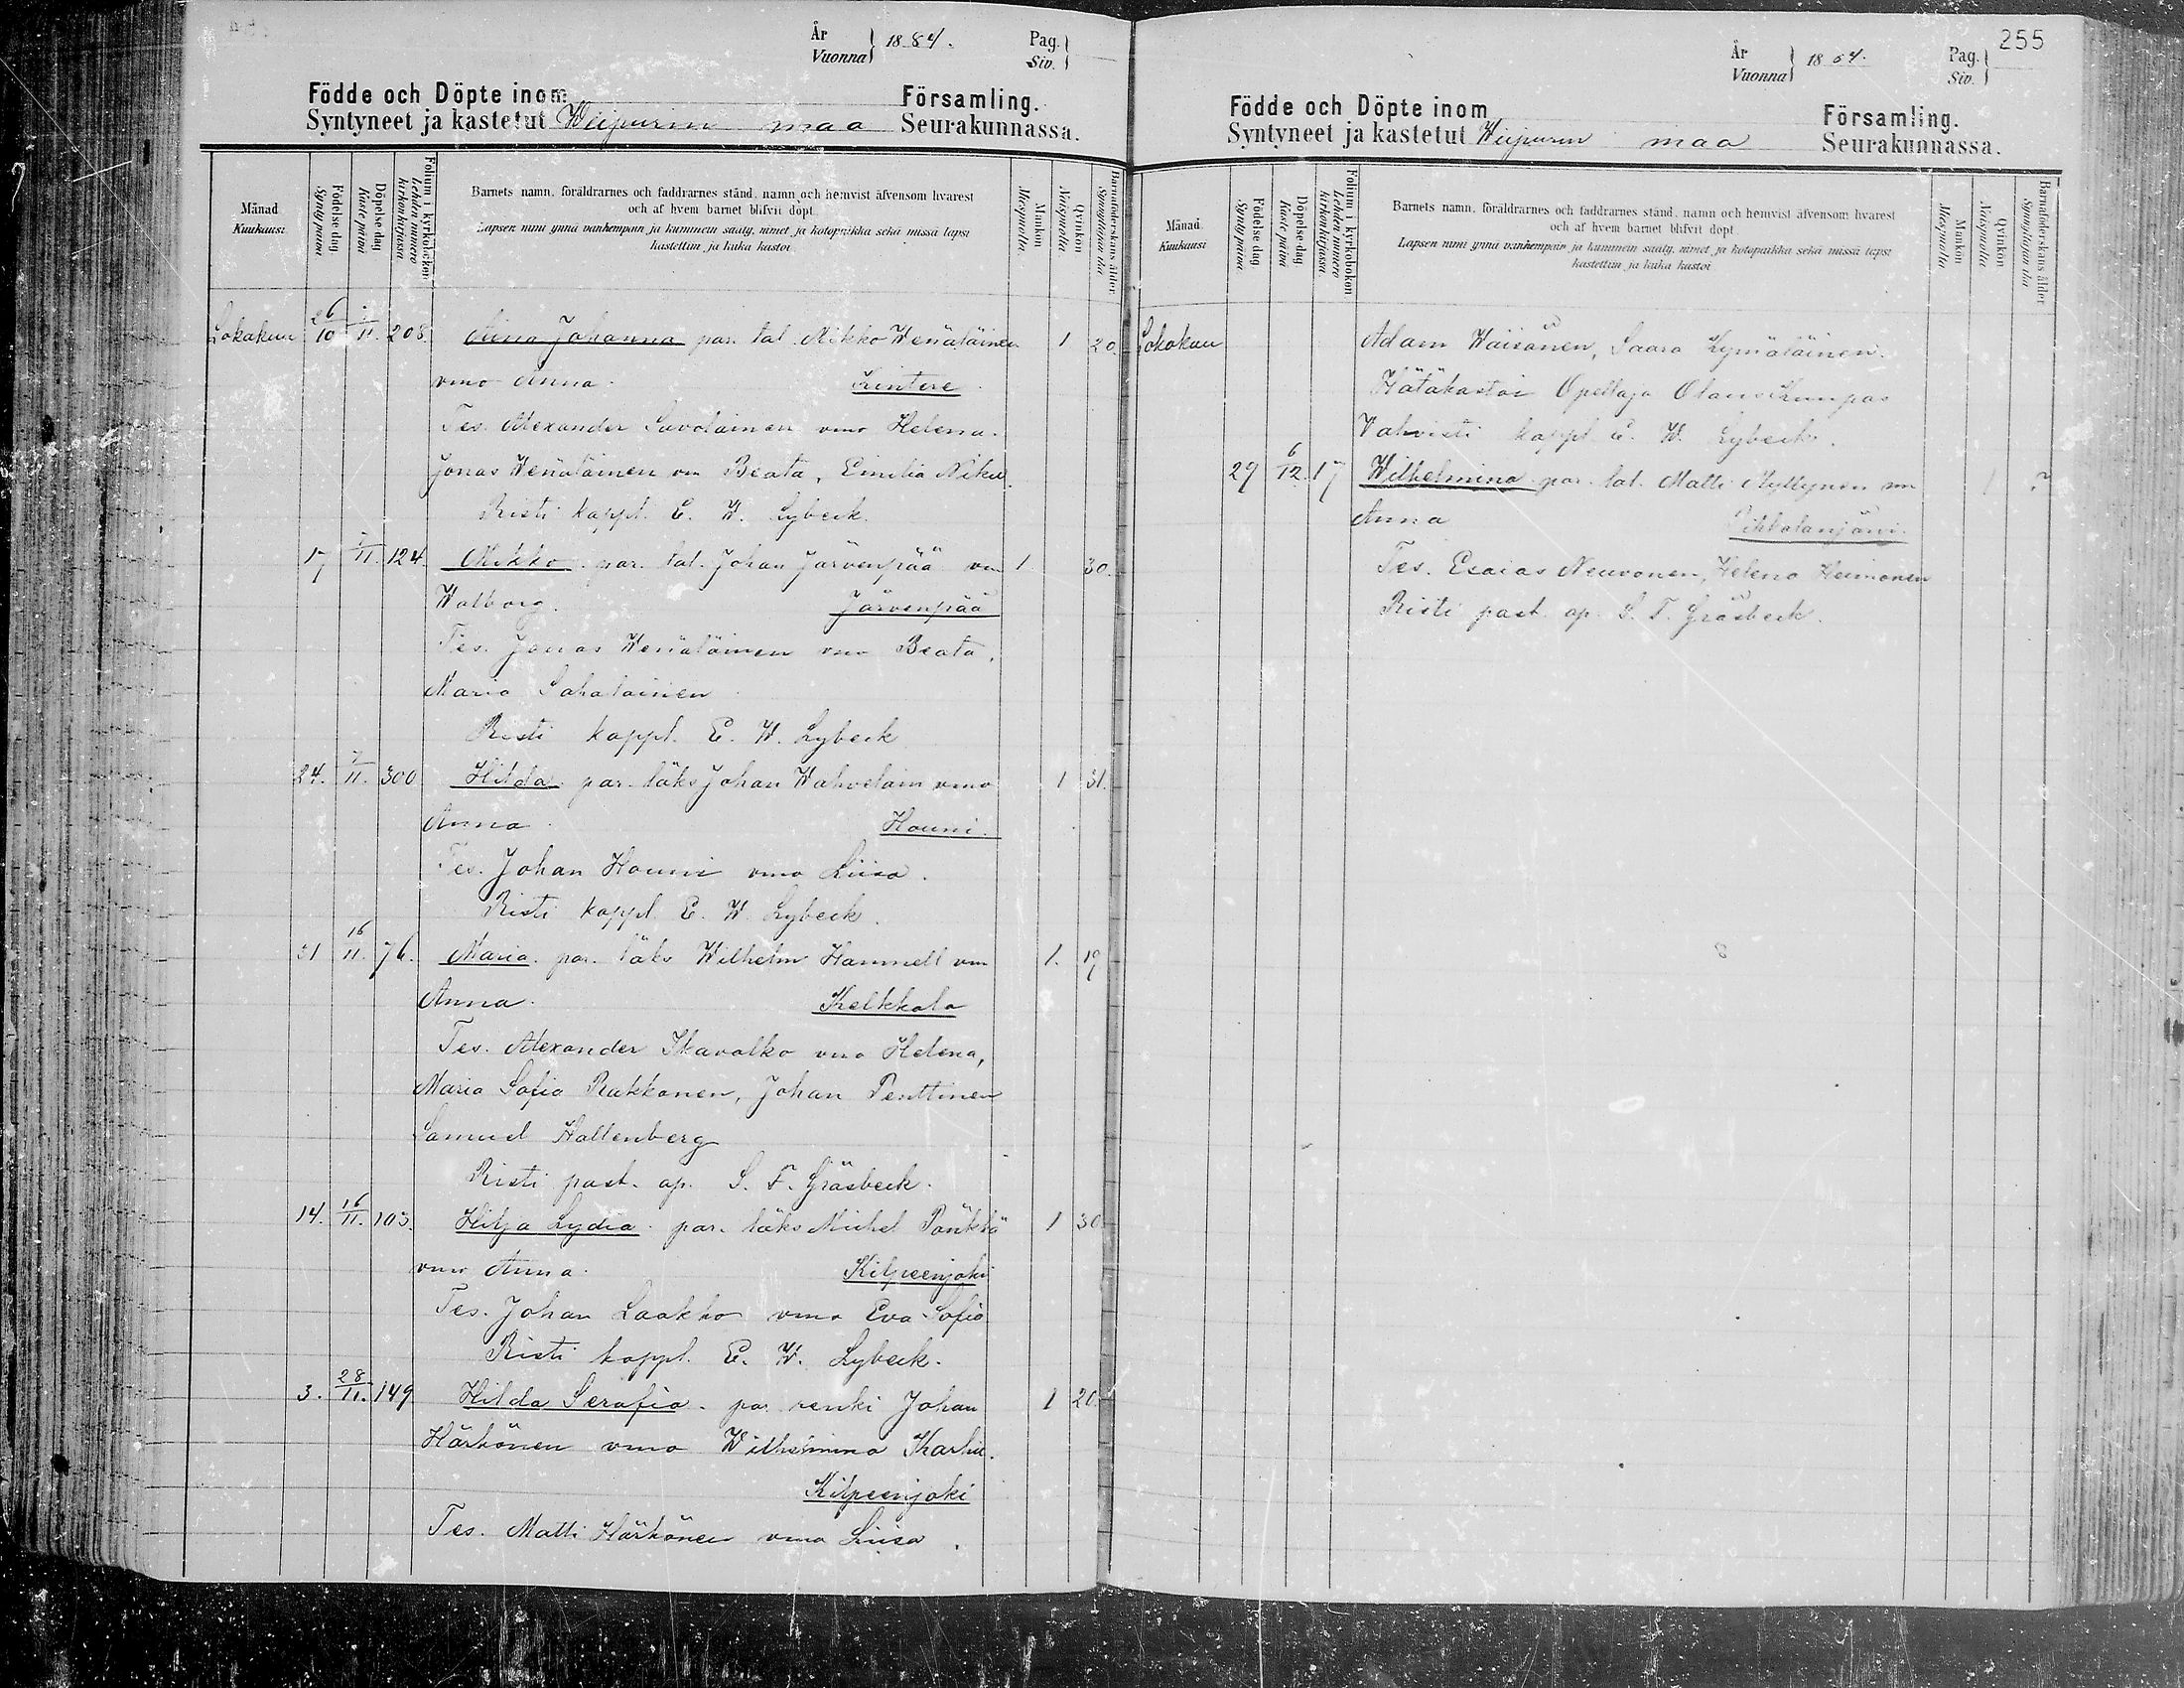 År 1884. Pag.
Vuonna Siv.
Födde och Döpte inom Församling.
Syntyneet ja kastetut Wiipurin maa Seurakunnassa.
Månad Kuukausi
Födelse-dag Synty päivä
Döpelse-dag Kaste päivä
Folium i kyrkoboken Lehden numero kirkonkirjassa
Barnets namn, föräldrarnes och faddrarnes stånd, namn och hemvist äfvensom hvarest
och af hvem barnet blifvit döpt.
Lapsen nimi ynnä vanhempain ja kummein sääty, nimet ja kotopaikka sekä missä lapsi
kastettiin ja kuka kastoi
Mankön Miespuolia
Qvinkön Naispuolia
Barnaföderskans ålder Synnyttäjän ikä
Lokakuu 26/10 11. 208. Johanna par. tal. Mikko Wenäläinen 1 20.
vmo Anna. Kintere
Tes. Alexander Savolainen vmo Helena.
Jonas Wenäläinen vm Beata, Emilia Niku.
Risti kappl. E. W. Lybeck.
17 11. 124. Mikko. par. tal. Johan Järvenpää vm 1 30.
Walborg. Järvenpää
Tes. Jonas Wenäläinen vmo Beata,
Maria Sahalainen
Risti kappl. E. W. Lybeck
24. 11. 300 Hilda par. läks Johan Wahvelain vmo 1 31.
Anna. Houni.
Tes. Johan Houni vmo Liisa.
Risti kappl. E. W. Lybeck.
31 16/11. 76. Maria. par. läks Wilhelm Hammell vm 1. 19
Anna. Kelkkala
Tes. Alexander Skavalko vmo Helena,
Maria Sofia Rakkanen, Johan Penttinen
Samuel Hallenberg
Risti past. ap. S. F. Gräsbeck.
14. 16/11. 103. Hilja Lydia. par. läks Michel Pönkkä 1 30
vmo Anna. Kilpeenjoki
Tes. Johan Laakko vmo Eva Sofia
Risti kappl. E. W. Lybeck.
3. 28/11. 149 Hilda Serafia. par renki Johan 1 20.
Härkönen vmo Wilhelmina Karhu.
Kilpeenjoki
Tes. Matti Härkönen vmo Liisa.
255
År 1884. Pag.
Vuonna Siv.
Födde och Döpte inom Församling.
Syntyneet ja kastetut Wiipurin maa Seurakunnassa.
Månad Kuukausi
Födelse-dag Synty päivä
Döpelse-dag Kaste päivä
Folium i kyrkoboken Lehden numero kirkonkirjassa
Barnets namn, föräldrarnes och faddrarnes stånd, namn och hemvist äfvensom hvarest
och af hvem barnet blifvit döpt.
Lapsen nimi ynnä vanhempain ja kummein sääty, nimet ja kotopaikka sekä missä lapsi
kastettiin ja kuka kastoi
Mankön Miespuolia
Qvinkön Naispuolia
Barnaföderskans ålder Synnyttäjän ikä
Lokakuu Adam Wäisänen, Saara Kymäläinen.
Hätäkastoi Opettaja Olaus Kumpas
Vahvisti kappl. E. W. Lybeck.
29 6/12. 17 Wilhelmina par. tal. Matti Kyllynen vm 1 ?
Anna Pihkalanjärvi.
Tes. Esaias Neuvonen, Helena Heimonen
Risti past. ap. S. F. Gräsbeck.